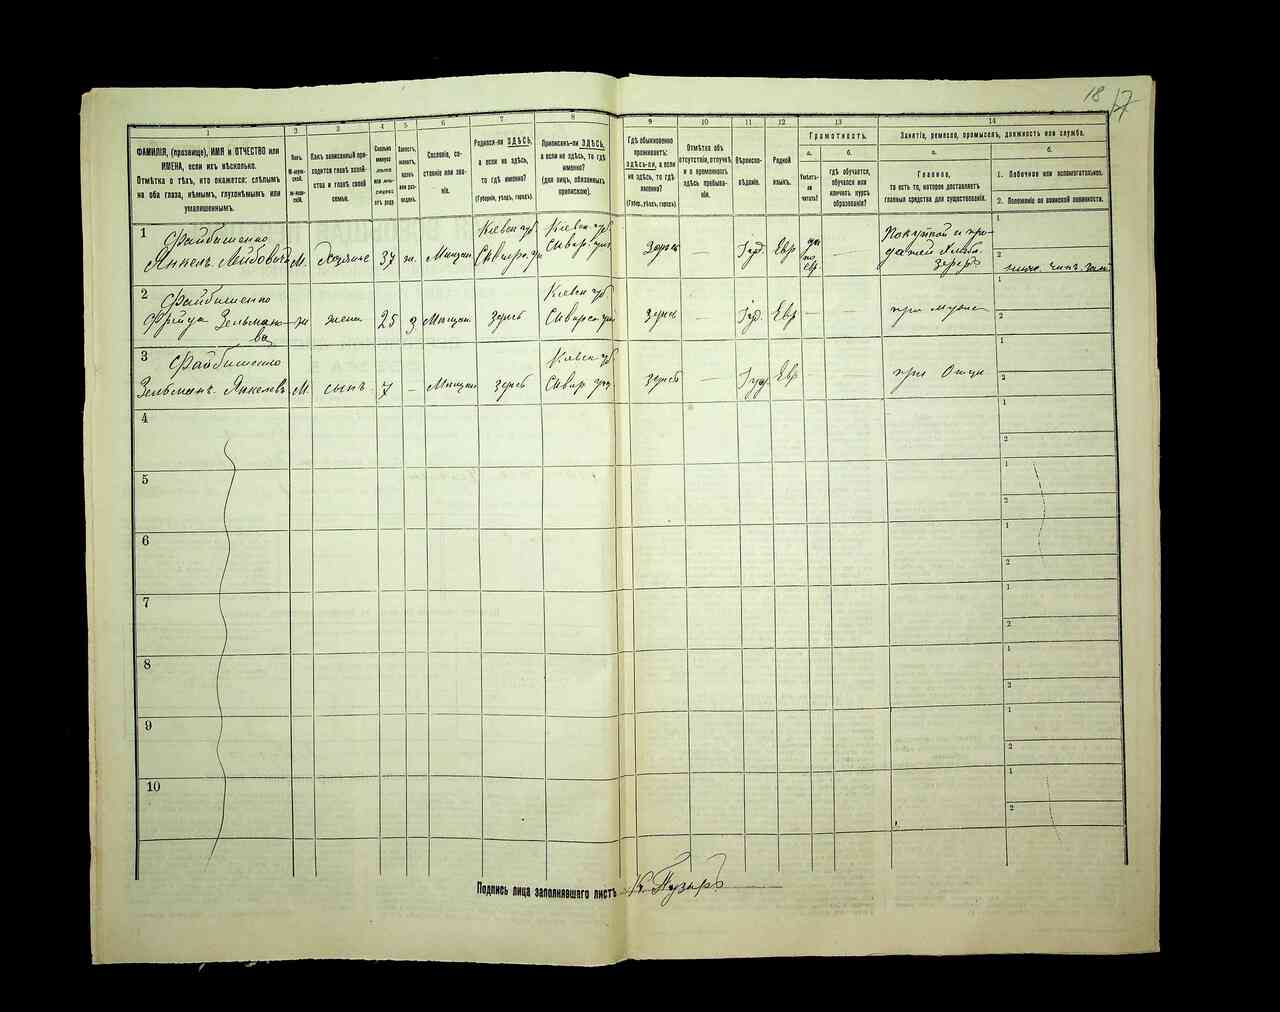 18 17
1 2 3 4 5 6 7 8 9 10 11 12 13 14
ФАМИЛІЯ, (прозвище), ИМЯ и ОТЧЕСТВО или
ИМЕНА, если ихъ нѣсколько.
Отмѣтка о тѣхъ, кто окажется: слѣпымъ
на оба глаза, нѣмымъ, глухонѣмымъ или
умалишеннымъ.
Полъ.
М-муж-
ской.
Ж-жен-
скій.
Какъ записанный при-
ходится главѣ хозяй-
ства и главѣ своей
семьи.
Сколько
минуло
лѣтъ
отъ роду
Сословіе, со-
стояніе или зва-
ніе.
Родился-ли ЗДѢСЬ,
а если не здѣсь,
то гдѣ именно?
(Губернія, уѣздъ, городъ).
Приписанъ-ли ЗДѢСЬ,
а если не здѣсь, то гдѣ
именно?
(для лицъ, обязанныхъ
припискою).
Гдѣ обыкновенно
проживаетъ:
здѣсь-ли, а если
не здѣсь, то гдѣ
именно?
(Губер., уѣздъ, городъ).
Отмѣтка объ
отсутствіи, отлучкѣ
и о временномъ
здѣсь пребыва-
ніи.
Вѣроиспо-
вѣданіе.
Родной
языкъ.
Грамотность.
а.
Умѣетъ-
ли
читать?
б.
гдѣ обучается,
обучался или
кончилъ курсъ
образованія?
Занятіе, ремесло, промыселъ, должность или служба.
а.
Главное,
то есть то, которое доставляетъ
главныя средства для существованія.
б.
1. Побочное или вспомогательное.
2. Положеніе по воинской повинности.
1 Файбишенко
Янкель Лейбовичъ М. Хозяинъ 37 ж. Мещан
Кіевск губ
Сквир. у
Кіевск губ
Сквир. у
Здѣсь Іуд. Евр да
по
евр.
Покупкой и про-
дажей хлѣба
зеренъ
1
2
2 Файбишенко
Фейга Зельмано-
ва ж жена 25 З Мещан. здѣсь
Кіевск губ
Сквирск у
здѣсь — Іуд. Евр — — при мужѣ
1
2
3 Файбишенко
Зельманъ Янкелевъ М. сынъ 7 — Мещан здѣсь
Кіевск губ
Сквир у
здѣсь — Іуд Евр — — при Отцѣ
1
2
4 1
2
5 1
2
6 1
2
7 1
2
8 1
2
9 1
2
10 1
2
Подпись лица заполнявшаго листъ К. Пузырь